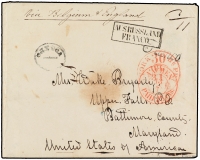 Via Belgium & England
AUS RUSSLAND
FRANCO
ODESSA
10
Mrs Wake Bryarly
Upper Falls P.O.
Baltimore County
Maryland.
United States of America